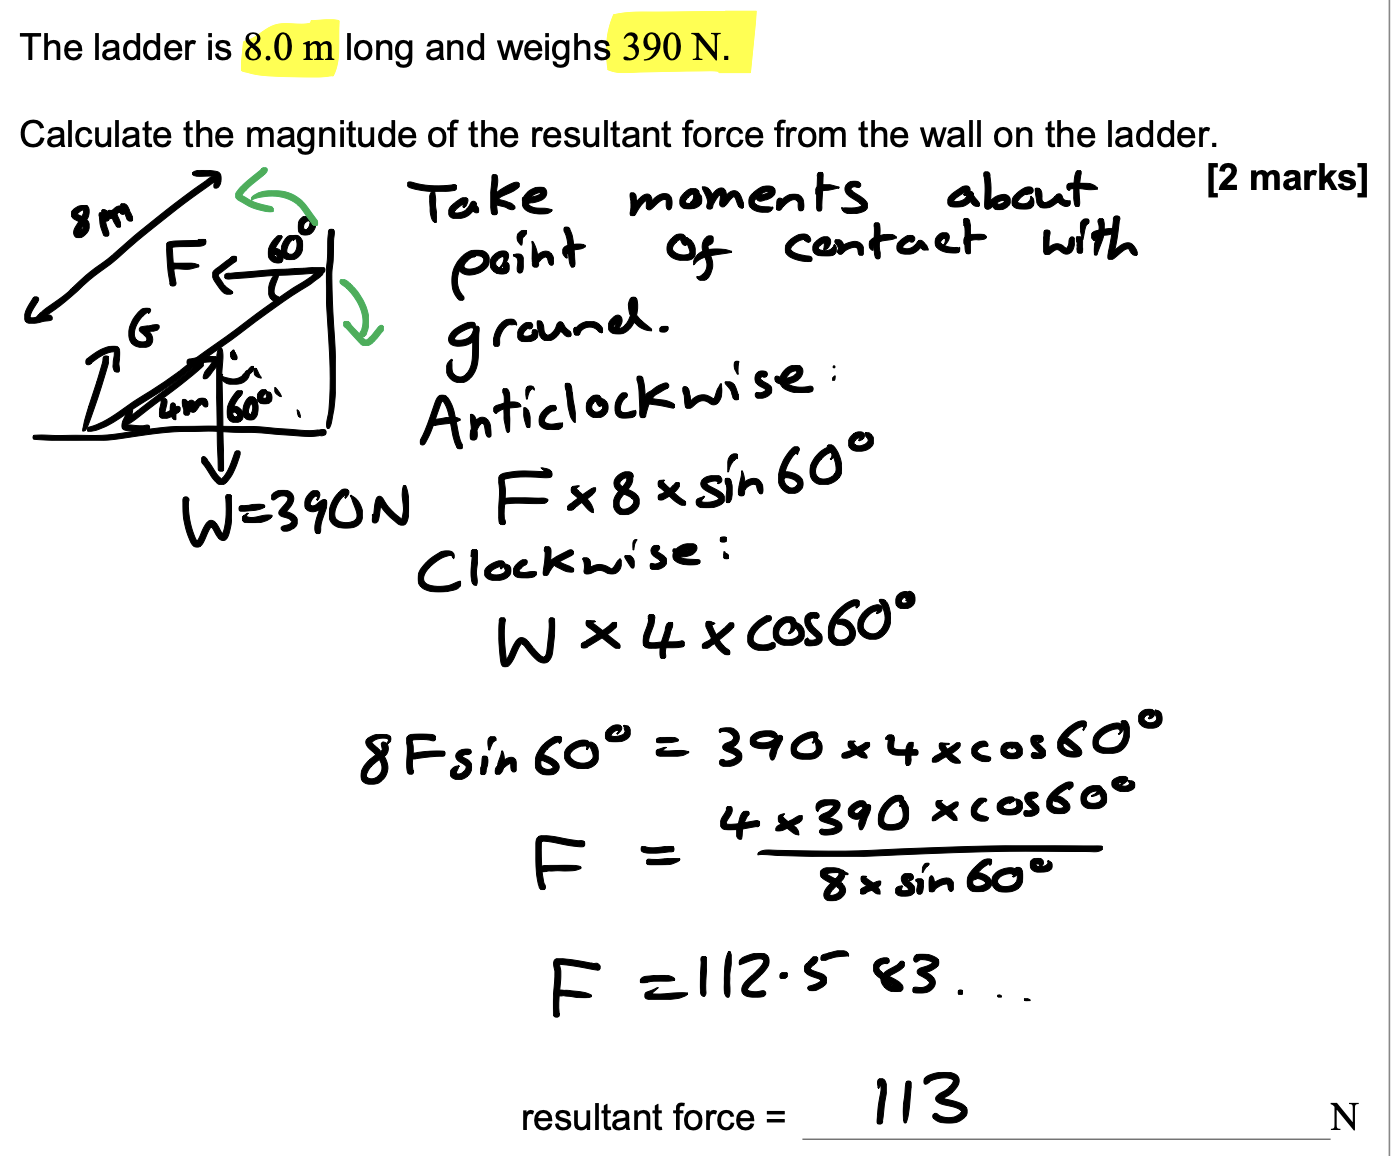 The ladder is 8.0 m long and weighs 390 N.
Calculate the magnitude of the resultant force from the wall on the ladder.
[2 marks]
8m
60°
F
G
4m
60°
W=390N
Take moments about
point of contact with
ground.
Anticlockwise:
F×8×sin60°
Clockwise:
W×4×cos60°
8Fsin60° = 390×4×cos60°
F = 4×390×cos60°
8×sin60°
F =112.583...
resultant force = 113 N